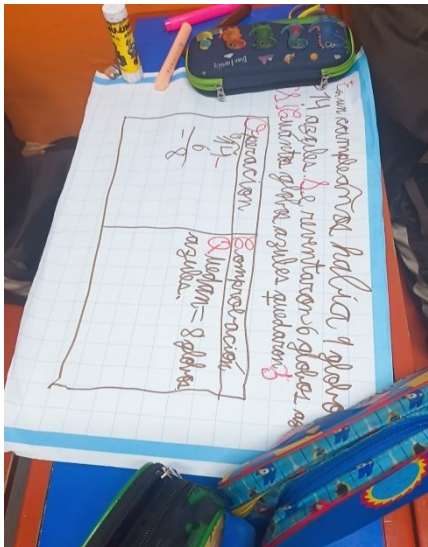 En un cumpleaños habia 9 globo
14 azules Se reventaron 6 globos az
¿Cuantos globos azules quedaron?
Operacion
14-
6
-8
Comprobación
Quedan = 8 globos
azules.